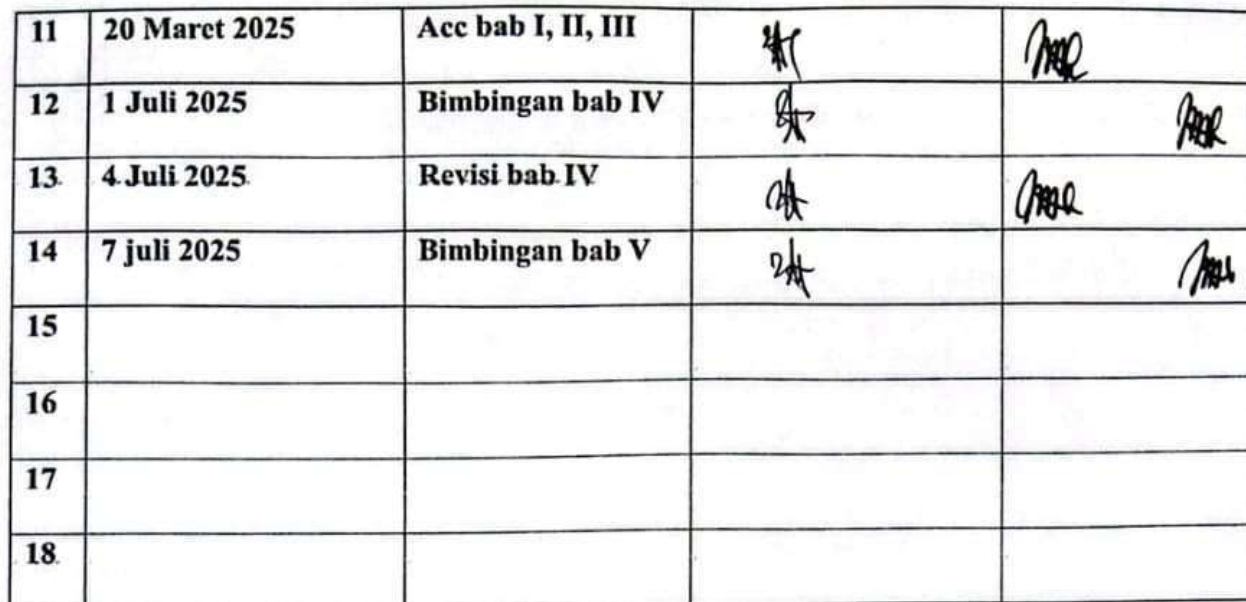 11 20 Maret 2025 Acc bab I, II, III
12 1 Juli 2025 Bimbingan bab IV
13 4 Juli 2025 Revisi bab IV
14 7 juli 2025 Bimbingan bab V
15
16
17
18